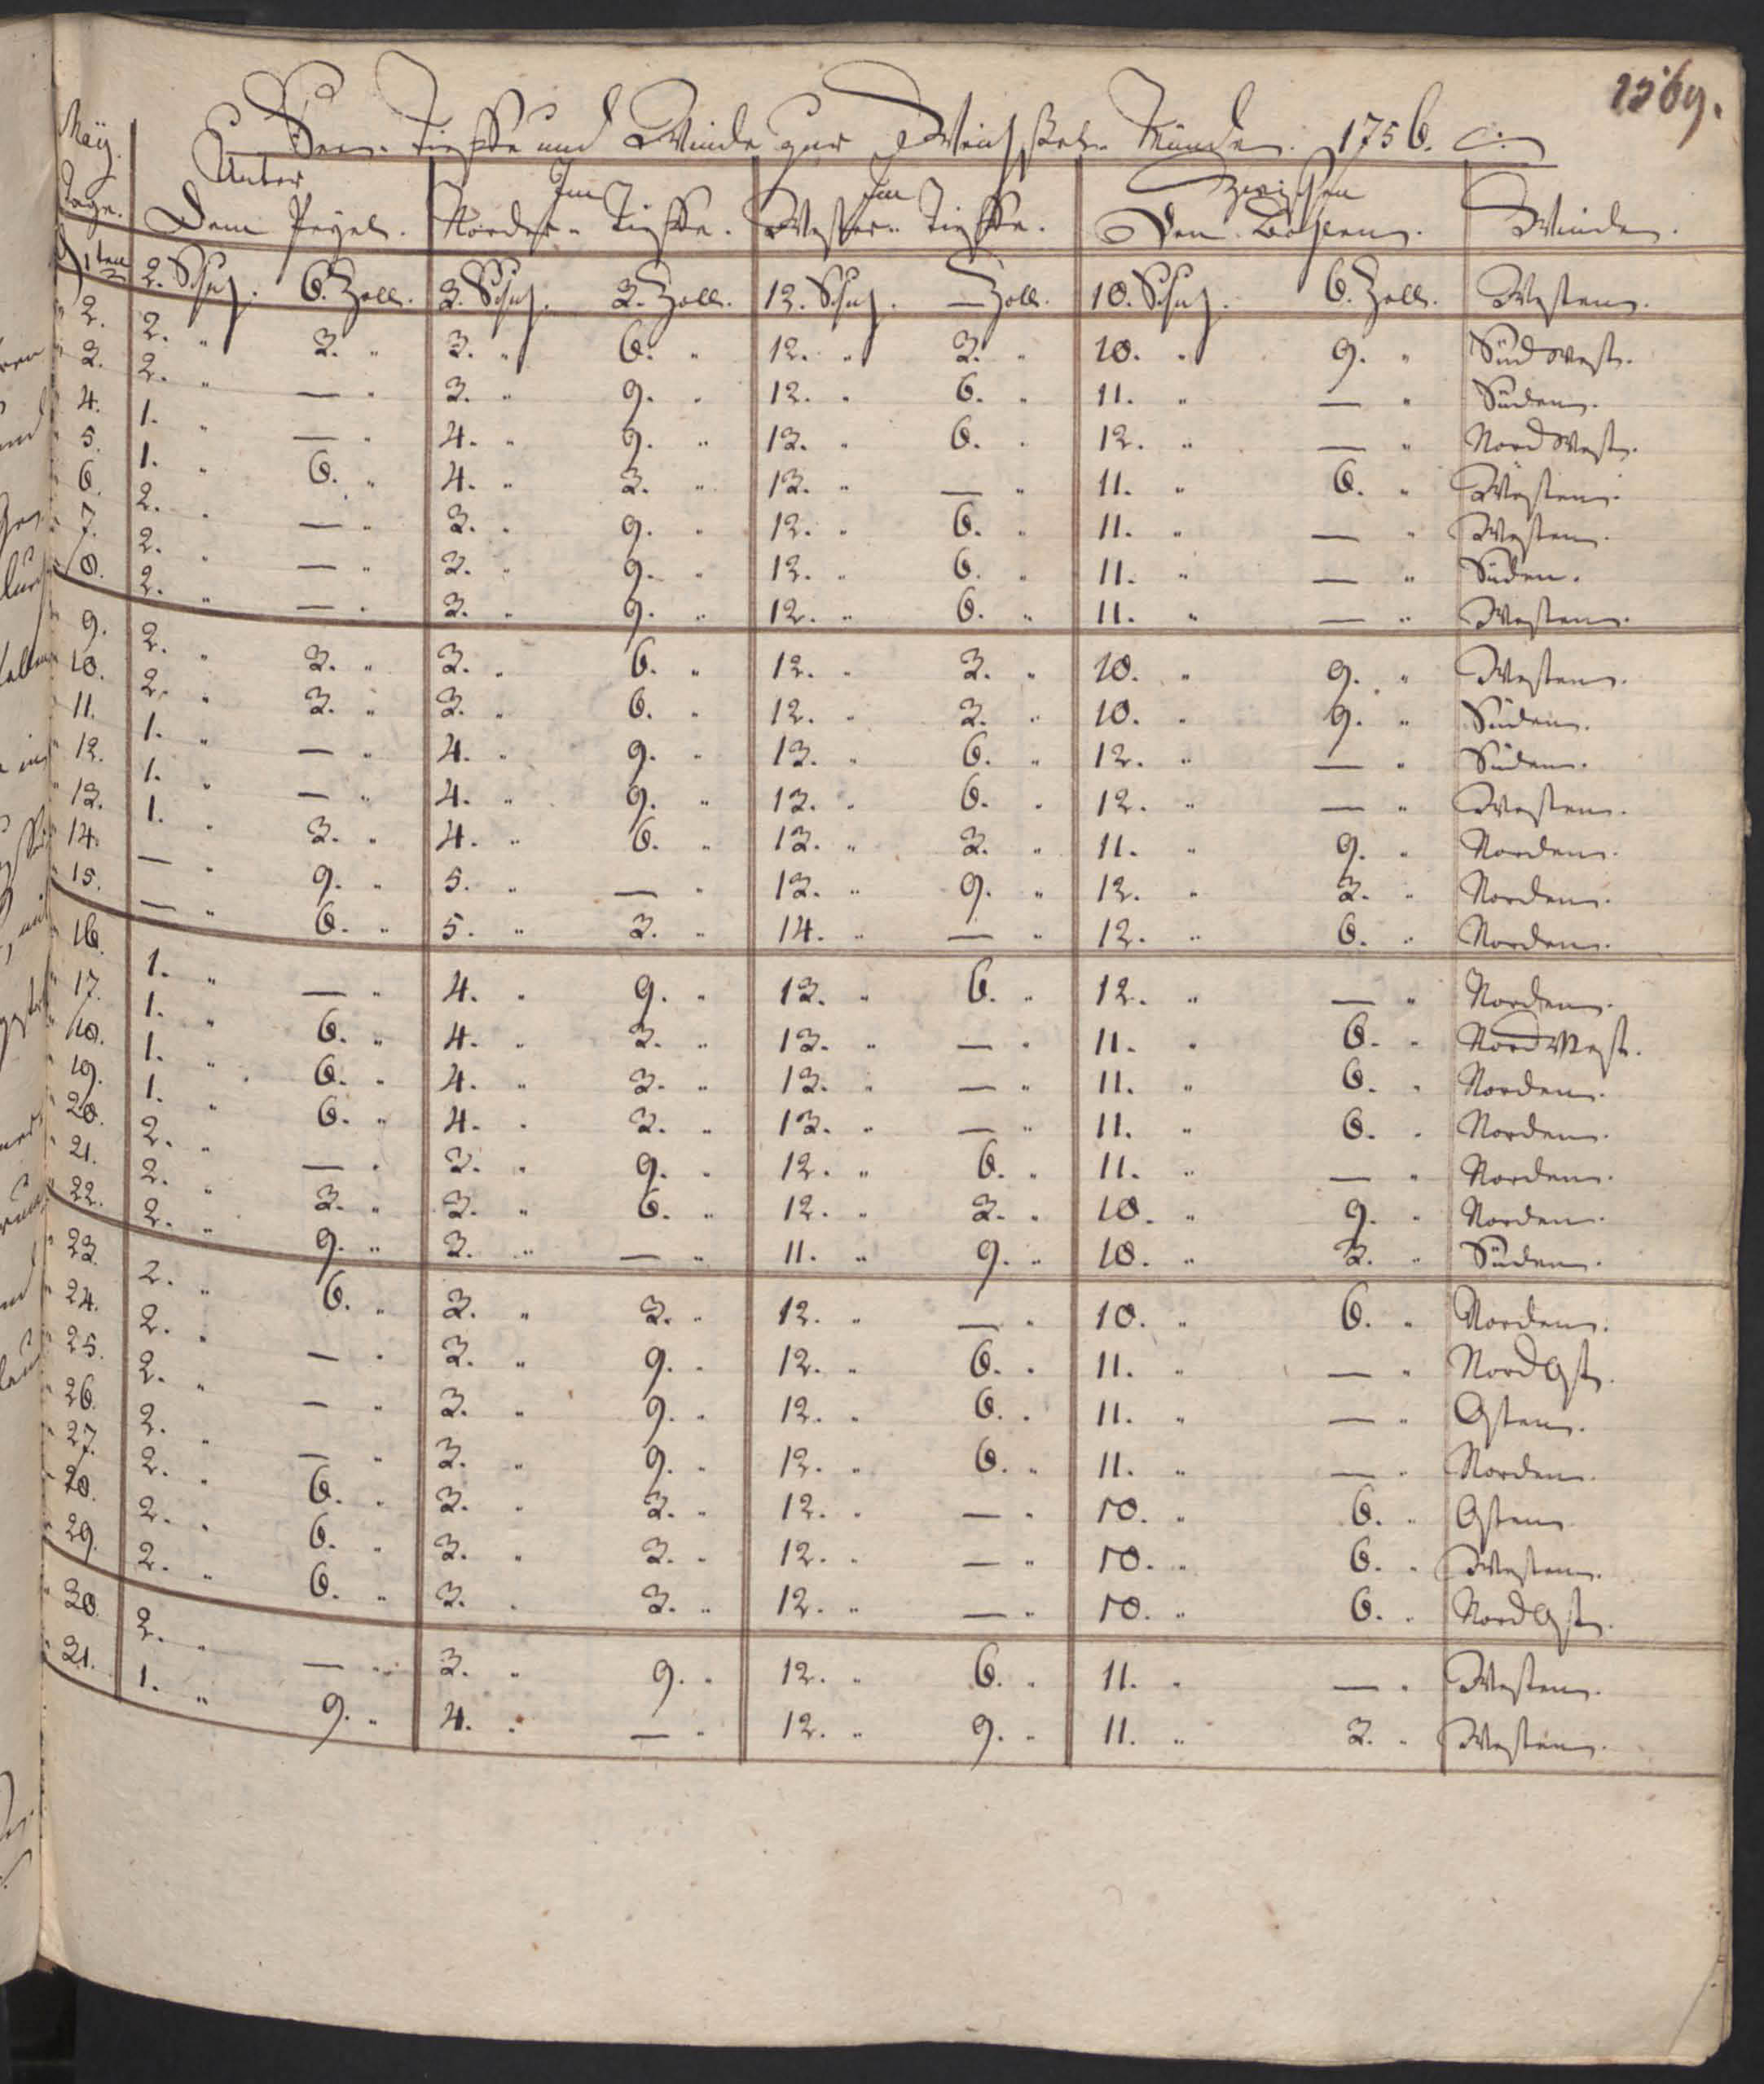 1569.
See-Tieffe und Winde zur Weichsel-Münde. 1756.
May. Tage. | Unter Dem Pegel. | Im Norder-Tieffe. | Im Wester-Tieffe. | Zwischen Den | Winde.
d 1ten | 2. Schuh. 6. Zoll. | 3. Schuh. 3. Zoll. | 12. Schuh. — Zoll. | 10. Schuh. 6. Zoll. | Westen.
" 2. | 2. " 3. " | 3. " 6. " | 12. " 3. " | 10. " 9. " | Südwest.
" 3. | 2. " — " | 3. " 9. " | 12. " 6. " | 11. " — " | Süden.
" 4. | 1. " — " | 4. " 9. " | 13. " 6. " | 12. " — " | Nordwest.
" 5. | 1. " 6. " | 4. " 3. " | 13. " — " | 11. " 6. " | Westen.
" 6. | 2. " — " | 3. " 9. " | 12. " 6. " | 11. " — " | Westen.
" 7. | 2. " — " | 3. " 9. " | 12. " 6. " | 11. " — " | Süden.
" 8. | 2. " — " | 3. " 9. " | 12. " 6. " | 11. " — " | Westen.
" 9. | 2. " 3. " | 3. " 6. " | 12. " 3. " | 10. " 9. " | Westen.
" 10. | 2. " 3. " | 3. " 6. " | 12. " 3. " | 10. " 9. " | Süden.
" 11. | 1. " — " | 4. " 9. " | 13. " 6. " | 12. " — " | Süden.
" 12. | 1. " — " | 4. " 9. " | 13. " 6. " | 12. " — " | Westen.
" 13. | 1. " 3. " | 4. " 6. " | 13. " 3. " | 11. " 9. " | Norden.
" 14. | — " 9. " | 5. " — " | 13. " 9. " | 12. " 3. " | Norden.
" 15. | — " 6. " | 5. " 3. " | 14. " — " | 12. " 6. " | Norden.
" 16. | 1. " — " | 4. " 9. " | 13. " 6. " | 12. " — " | Norden.
" 17. | 1. " 6. " | 4. " 3. " | 13. " — " | 11. " 6. " | Nordwest.
" 18. | 1. " 6. " | 4. " 3. " | 13. " — " | 11. " 6. " | Norden.
" 19. | 1. " 6. " | 4. " 3. " | 13. " — " | 11. " 6. " | Norden.
" 20. | 2. " — " | 3. " 9. " | 12. " 6. " | 11. " — " | Norden.
" 21. | 2. " 3. " | 3. " 6. " | 12. " 3. " | 10. " 9. " | Norden.
" 22. | 2. " 9. " | 3. " — " | 11. " 9. " | 10. " 3. " | Süden.
" 23. | 2. " 6. " | 3. " 3. " | 12. " — " | 10. " 6. " | Norden.
" 24. | 2. " — " | 3. " 9. " | 12. " 6. " | 11. " — " | NordOst.
" 25. | 2. " — " | 3. " 9. " | 12. " 6. " | 11. " — " | Osten.
" 26. | 2. " — " | 3. " 9. " | 12. " 6. " | 11. " — " | Norden.
" 27. | 2. " 6. " | 3. " 3. " | 12. " — " | 10. " 6. " | Osten
" 28. | 2. " 6. " | 3. " 3. " | 12. " — " | 10. " 6. " | Westen.
" 29. | 2. " 6. " | 3. " 3. " | 12. " — " | 10. " 6. " | NordOst.
" 30. | 2. " — " | 3. " 9. " | 12. " 6. " | 11. " — " | Westen.
" 31. | 1. " 9. " | 4. " — " | 12. " 9. " | 11. " 3. " | Westen.